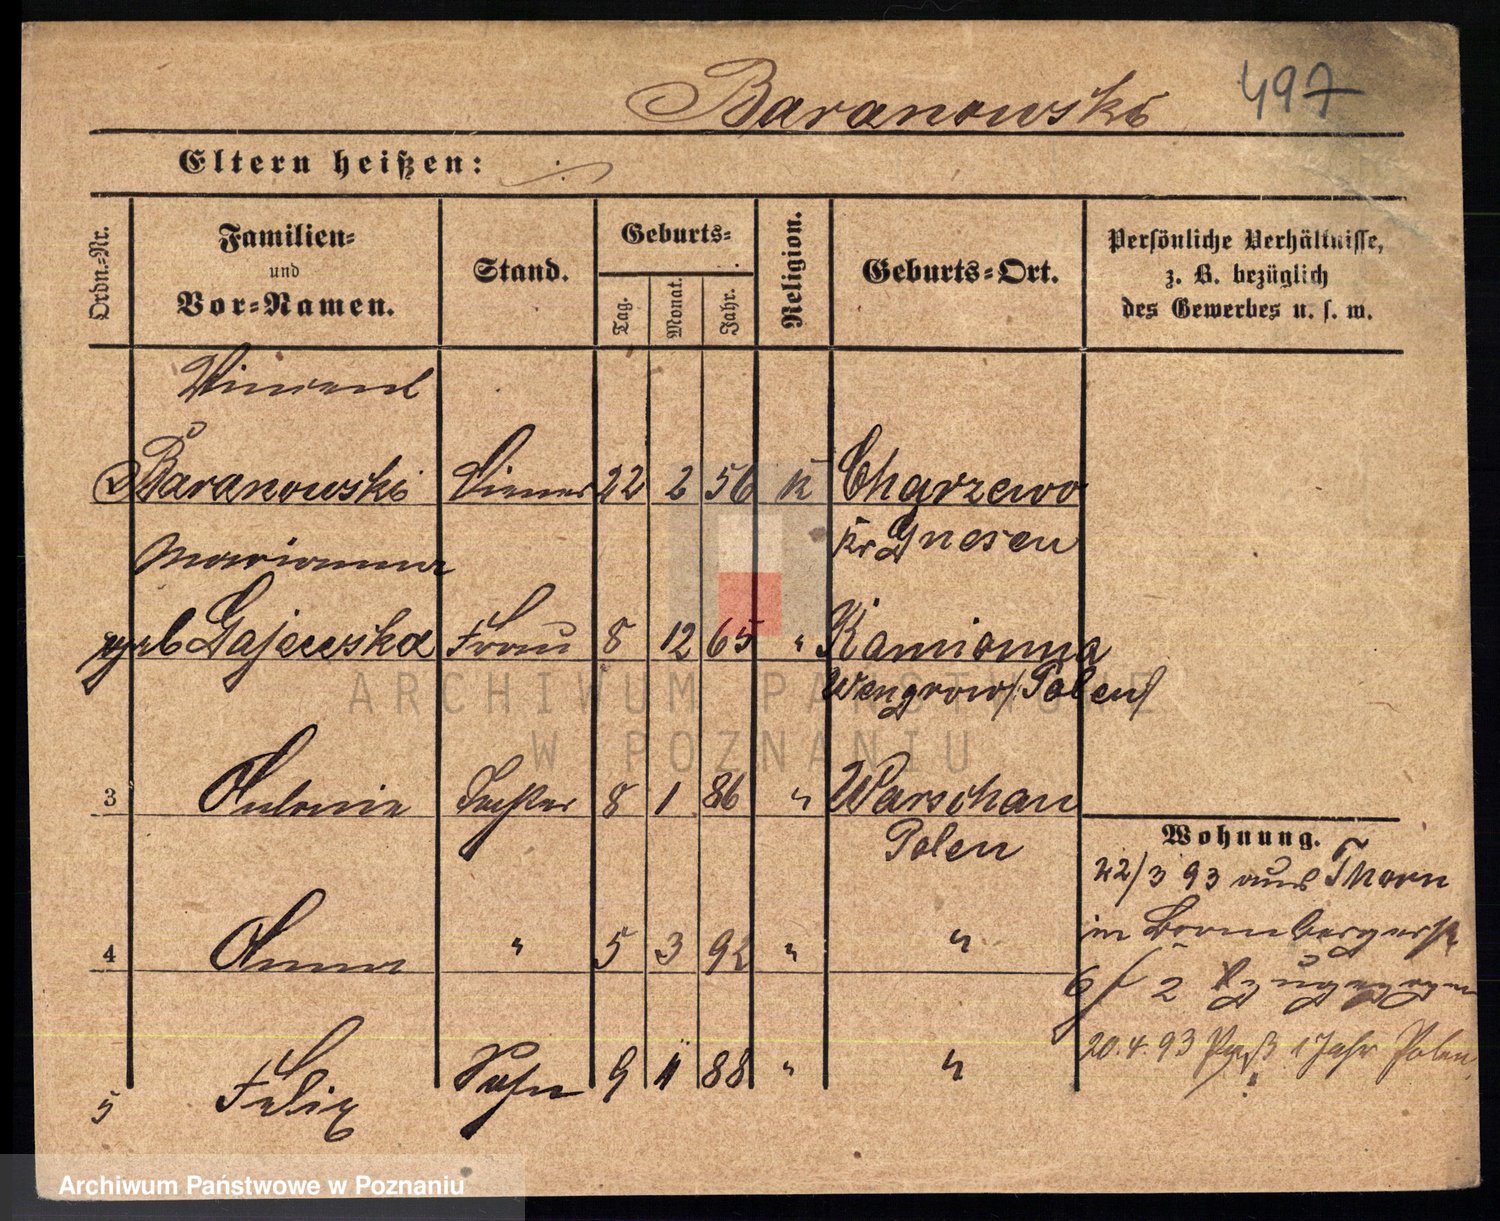 Baranowski 497
Eltern heißen: ·/·
Ordn.=Nr. Familien= und Vor=Namen. Stand. Geburts= Tag. Monat. Jahr. Religion. Geburts=Ort. Persönliche Verhältnisse, z. B. bezüglich des Gewerbes u. s. w.
Vincent
Baranowski 22 2 56 K Charzewo
Kr Gnesen
Marianna
geb Gajewska Frau 8 12 65 " Kamionna
Wengrow /: Polen /
3 Antonie Tochter 8 1 86 " Warschau
Polen
4 Anna " 5 3 92 " "
5 Felix Sohn 9 11 88 " "
Wohnung.
22/3 93 aus Thorn
in Brombergerstr
6 / 2 zugezogen
20.4.93 Paß 1 Jahr Polen
ARCHIWUM PAŃSTWOWE
W POZNANIU
Archiwum Państwowe w Poznaniu